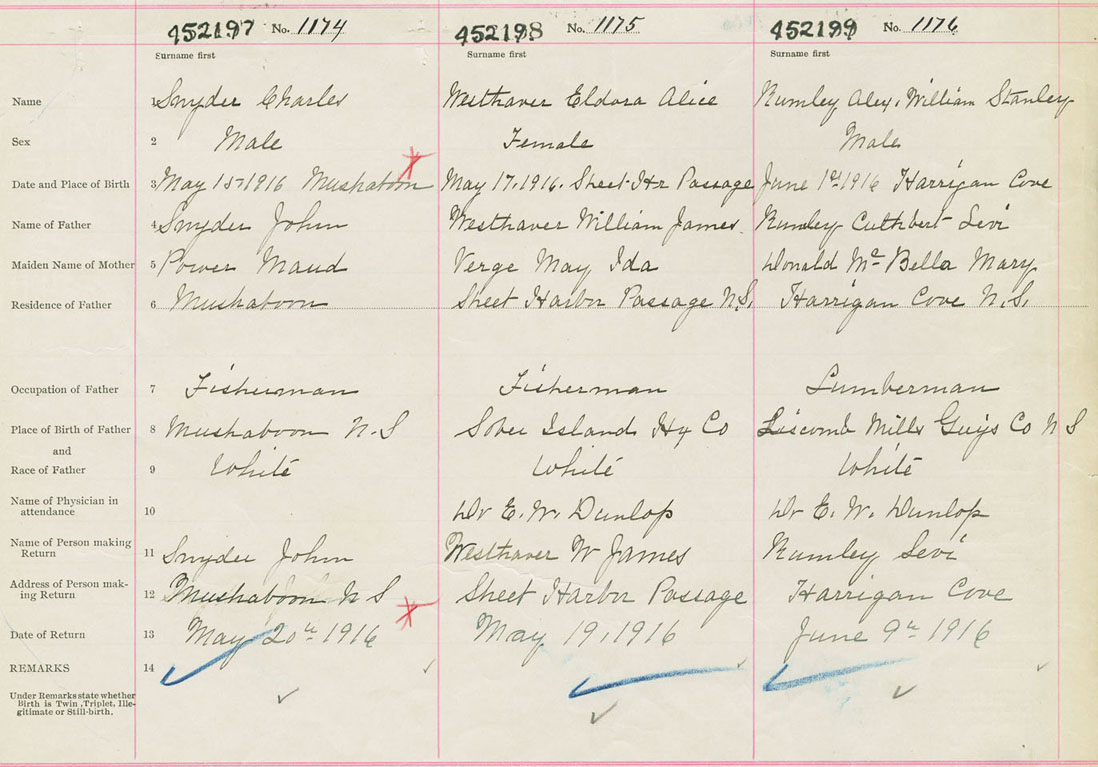 452197 No. 1174 452198 No. 1175 452199 No. 1176
Surname first Surname first Surname first
Name 1 Snyder Charles Westhaver Eldora Alice Rumley Alex. William Stanley
Sex 2 Male Female Male
Date and Place of Birth 3 May 15-1916 Mushaboom May 17, 1916. Sheet Hr Passage June 1st 1916 Harrigan Cove
Name of Father 4 Snyder John Westhaver William James Rumley Cuthbert Levi
Maiden Name of Mother 5 Power Maud Verge May Ida Donald Mc Bella Mary
Residence of Father 6 Mushaboom Sheet Harbor Passage N.S. Harrigan Cove N.S.
Occupation of Father 7 Fisherman Fisherman Lumberman
Place of Birth of Father 8 Mushaboom N-S Sober Island Hx Co Liscomb Mills Guys Co N S
and
Race of Father 9 White White White
Name of Physician in
attendance 10 Dr E. W. Dunlop Dr E. W. Dunlop
Name of Person making
Return 11 Snyder John Westhaver W James Rumley Levi
Address of Person mak-
ing Return 12 Mushaboom N S Sheet Harbor Passage Harrigan Cove
Date of Return 13 May 20th 1916 May 19, 1916 June 9th 1916
REMARKS 14
Under Remarks state whether
Birth is Twin, Triplet, Ille-
gitimate or Still-birth.